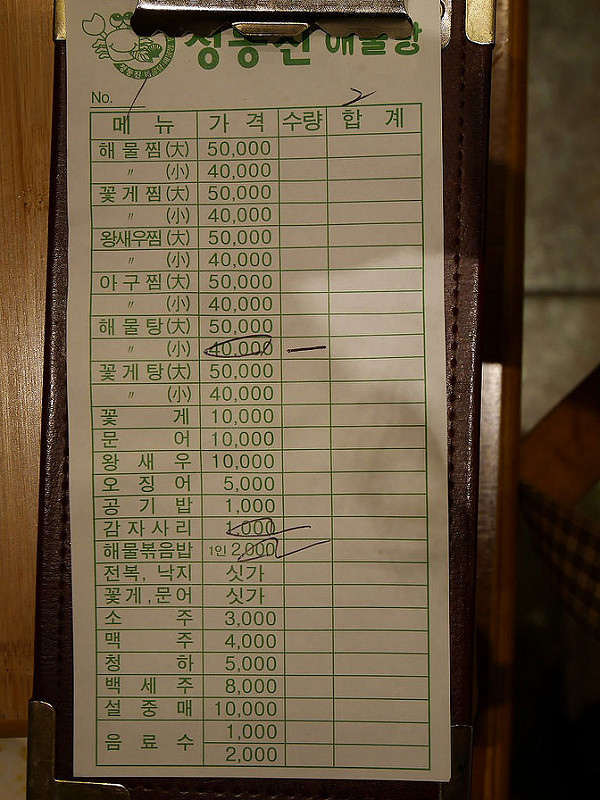 정동진 해물탕
No.
2
메 뉴 가 격 수량 합 계
해물찜(大) 50,000
〃 (小) 40,000
꽃게찜(大) 50,000
〃 (小) 40,000
왕새우찜(大) 50,000
〃 (小) 40,000
아구찜(大) 50,000
〃 (小) 40,000
해물탕(大) 50,000
〃 (小) 40,000
꽃게탕(大) 50,000
〃 (小) 40,000
꽃 게 10,000
문 어 10,000
왕 새 우 10,000
오 징 어 5,000
공 기 밥 1,000
감자사리 1,000
해물볶음밥 1인 2,000
전복, 낙지 싯가
꽃게,문어 싯가
소 주 3,000
맥 주 4,000
청 하 5,000
백 세 주 8,000
설 중 매 10,000
음 료 수 1,000
2,000